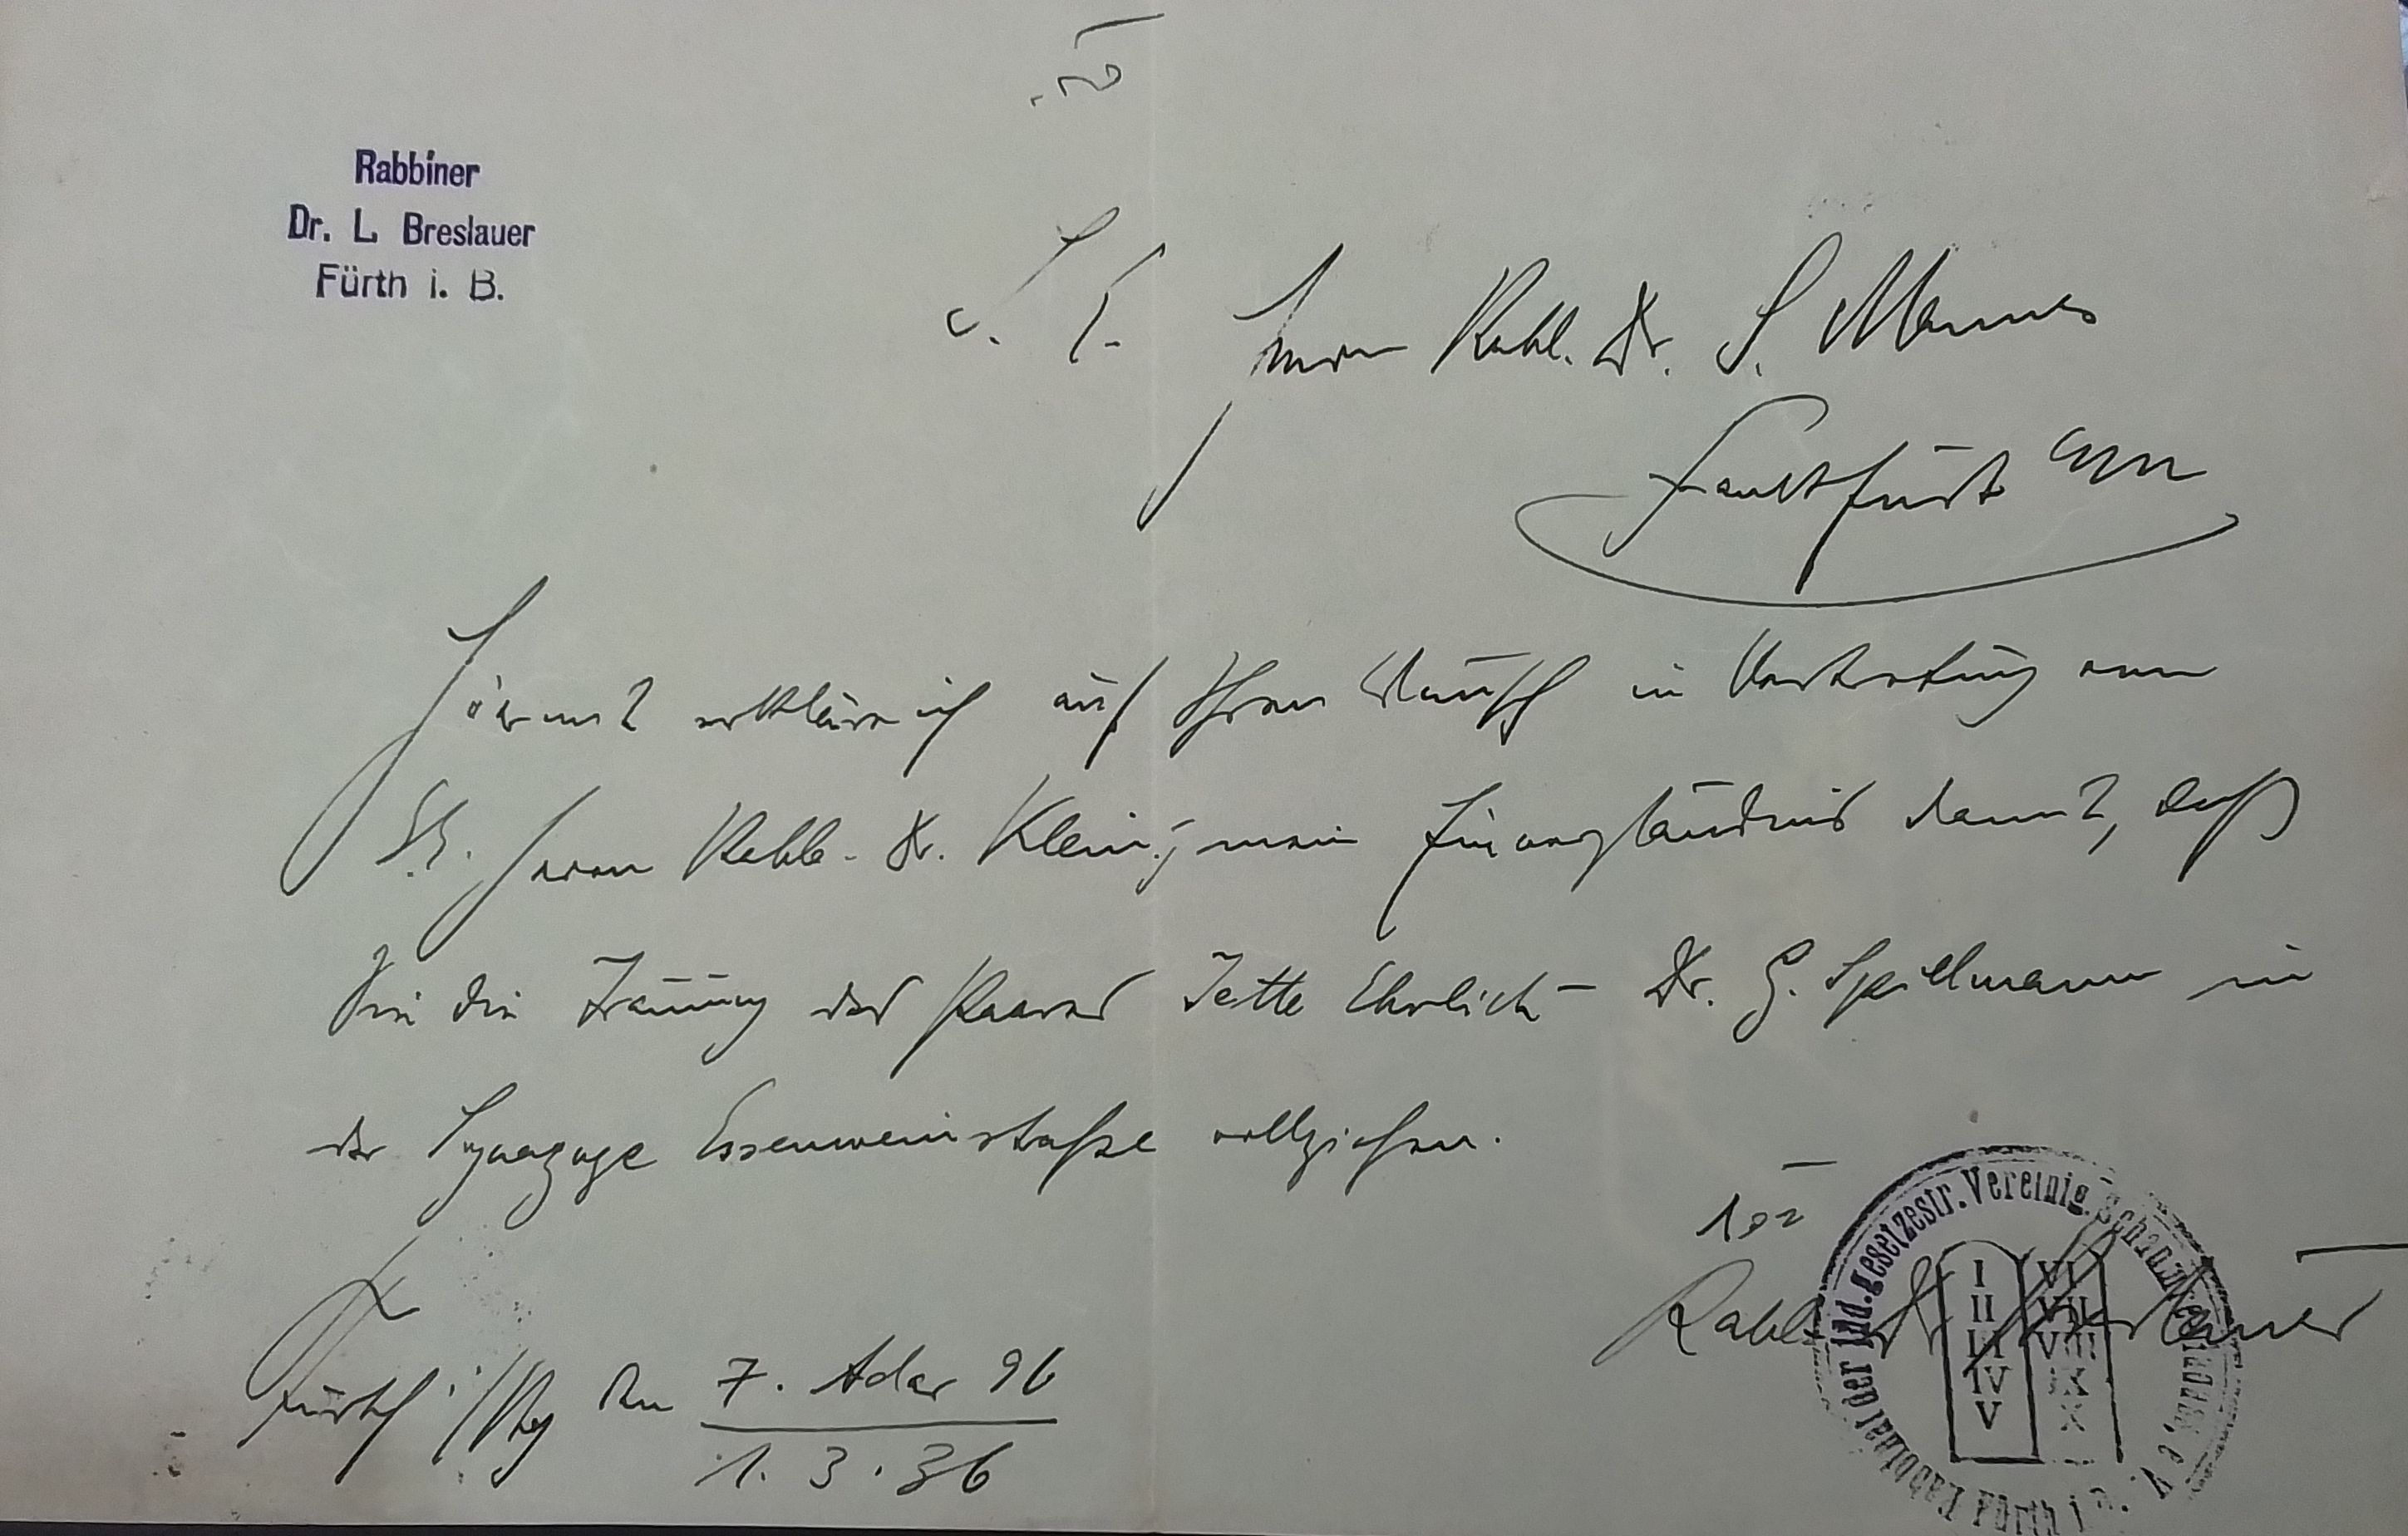 Rabbiner
Dr. L. Breslauer
Fürth i. B.
S. T. Herrn Rabb. Dr. S. Mannes
Frankfurt a/M
Hiermit erkläre ich auf Ihren Wunsch in Vertretung von
Sr. Herrn Rabb. Dr. Klein, mein Einverständnis damit, daß
Sie die Trauung des Paares Jette Ehrlich – Dr. G. Spillmann in
der Synagoge Essenweinstraße vollziehen.
Rabb. Dr. Breslauer
Fürth i/By den 7. Adar 96
1. 3. 36
Rabbinat der jüd. gesetzestr. Vereinig. e. V. Fürth i. B.
I VI
II VII
III VIII
IV IX
V X